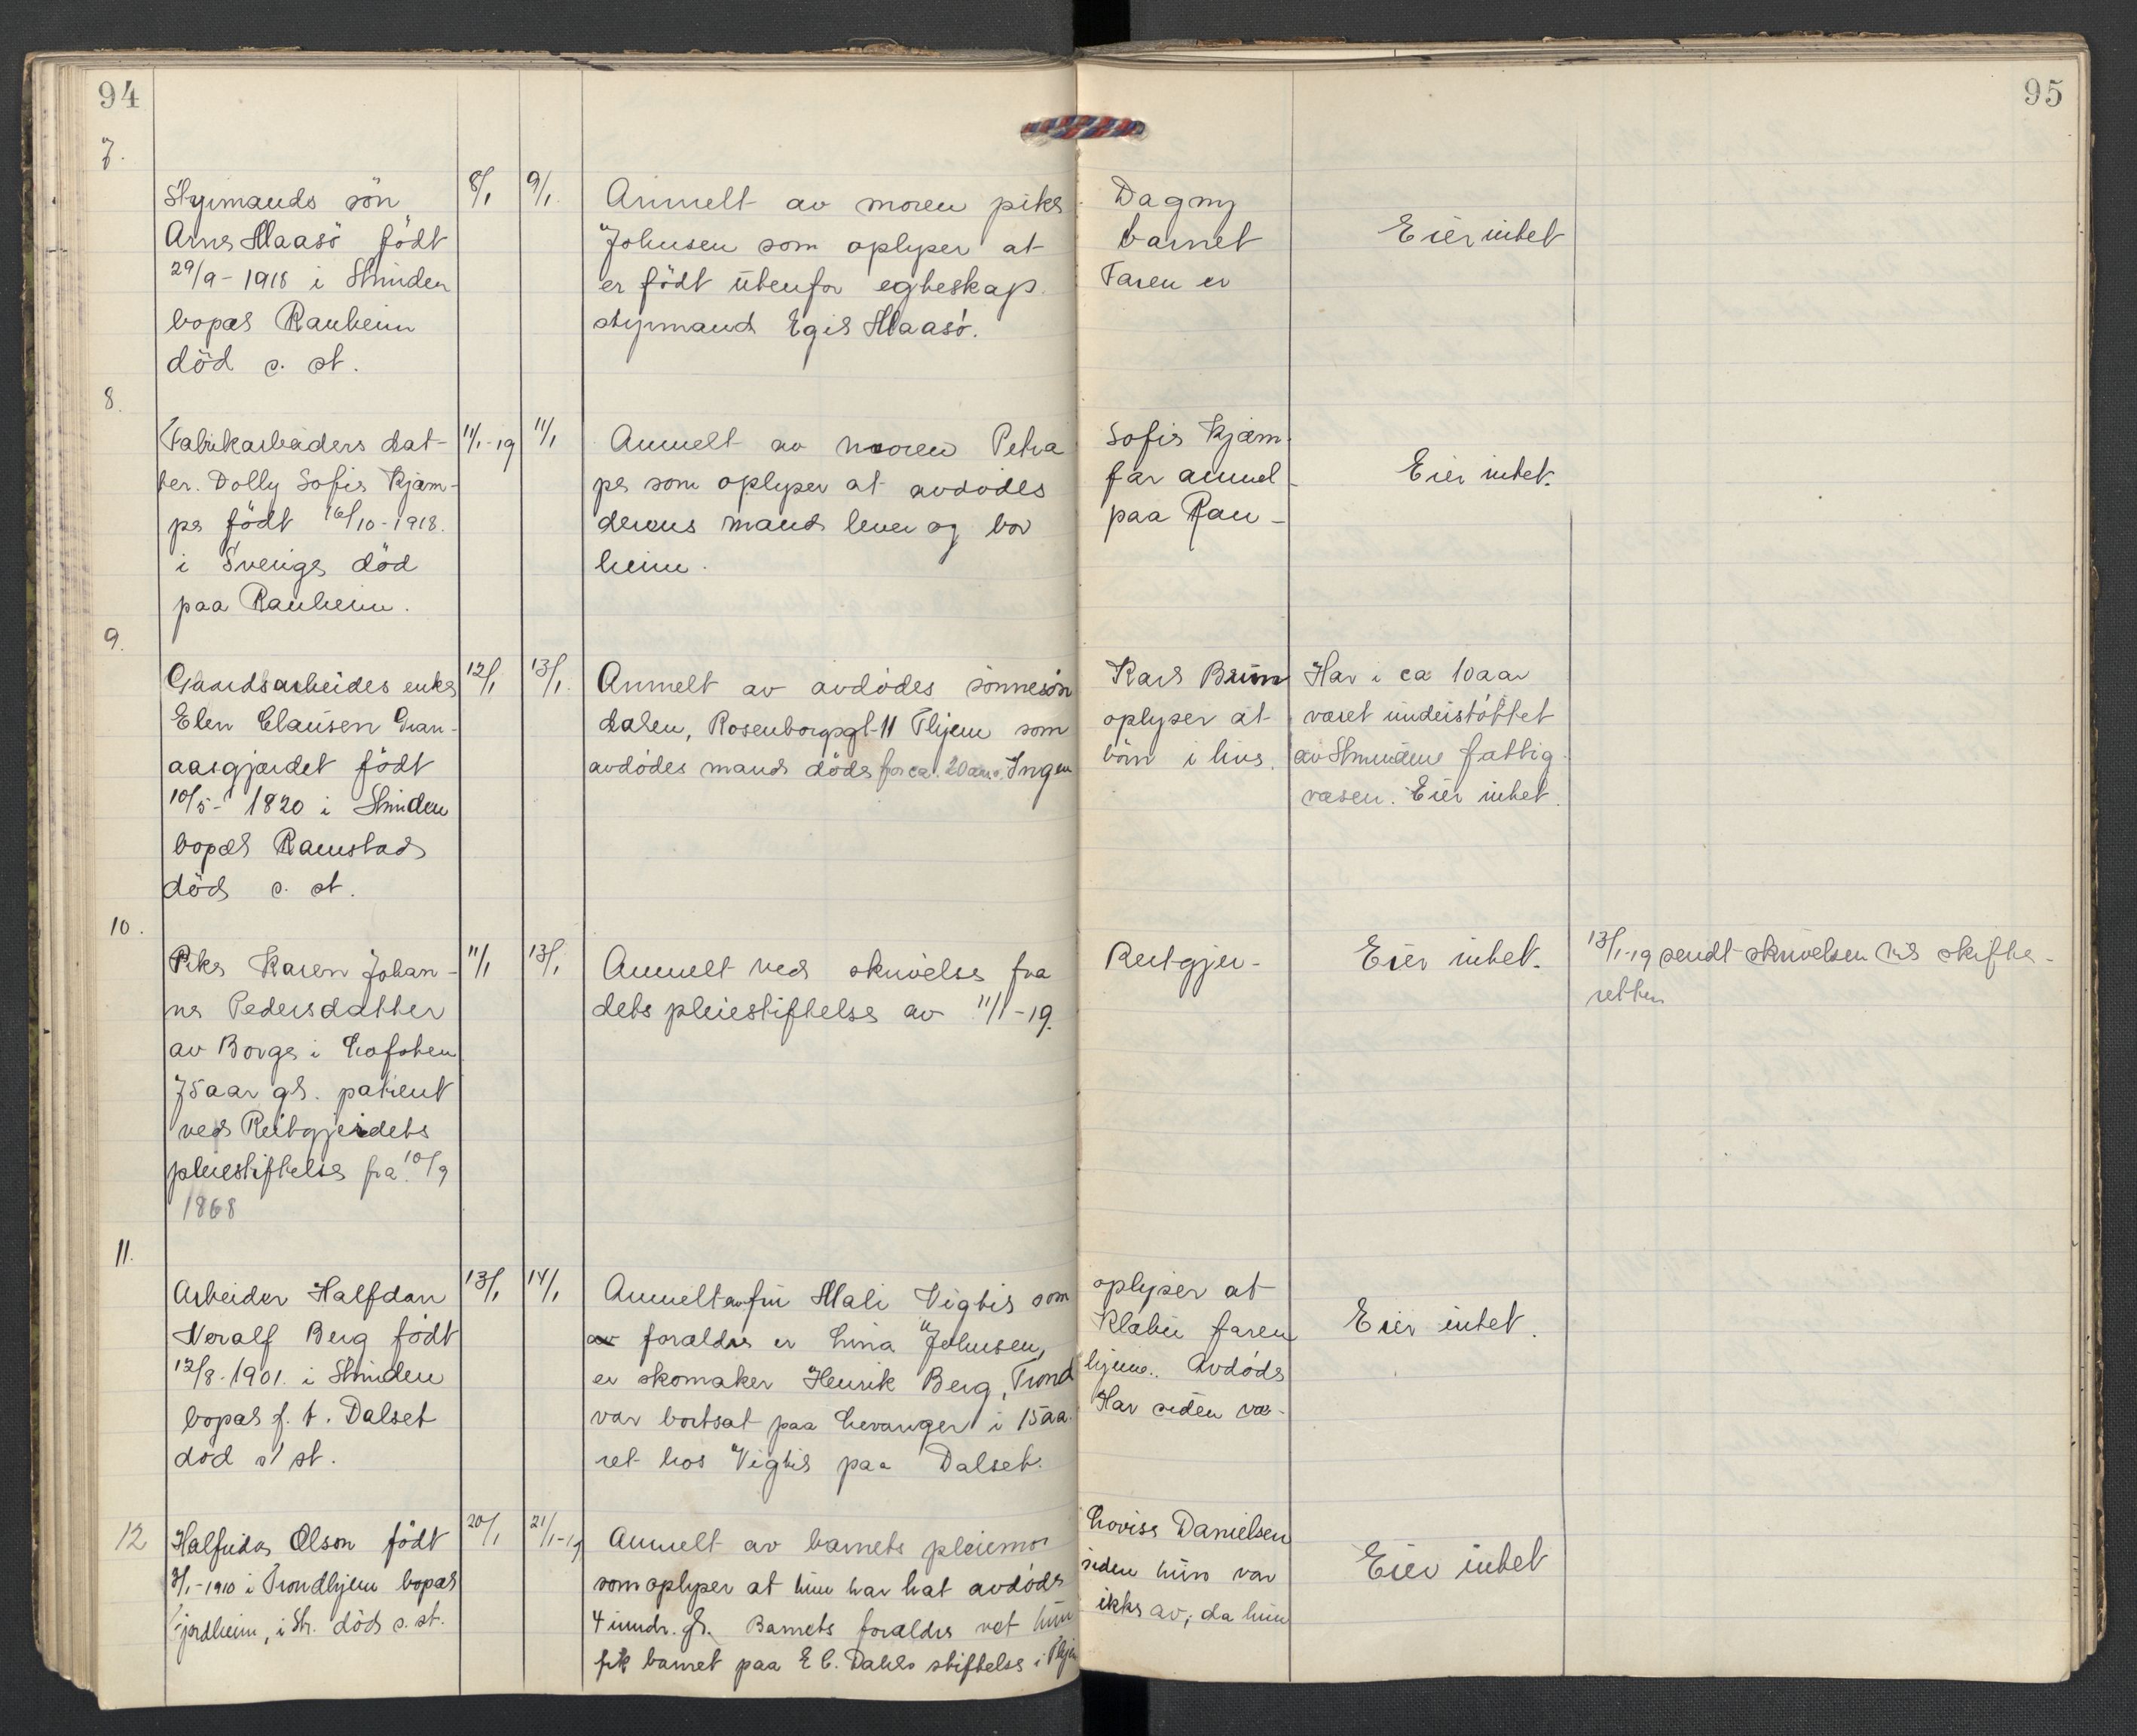 94
95
7.
Styrmands sön
Arne Maasö födt
29/9-1918 i Strinden
bopæl Ranheim
död s. st.
8/1
9/1.
Anmelt av moren pike Dagny
Johnsen som oplyser at barnet
er födt utenfor egteskap. Faren er
styrmand Egil Maasö.
Eier intet
8.
Fabrikarbeiders dat-
ter. Dolly Sofie Kjæm-
pe födt 16/10-1918.
i Sverige död
paa Ranheim.
11/1-19
11/1
Anmelt av moren Petra Sofie Kjæm-
pe som oplyser at avdødes far anmel-
derens mand lever og bor paa Ran-
heim.
Eier intet.
9.
Gaardsarbeides enke
Elen Clausen Gran-
aasgjærdet födt
10/5- 1820 i Strinden
bopæl Ramstad
död s. st.
12/1
13/1.
Anmelt av avdödes sönnesön Karl Brun
dalen, Rosenborggt. 11 Thjem som oplyser at
avdödes mand döde for ca. 20 aar s. Ingen börn i live.
Har i ca 10 aar
været understöttet
av Strindens fattig-
væsen. Eier intet.
10.
Pike Karen Johan-
ne Pedersdatter
av Borge i Lofoten
75 aar gl. patient
ved Reitgjerdets
pleiestiftelse fra 10/9
1868
11/1
13/1
Anmelt ved skrivelse fra Reitgjer-
dets pleiestiftelse av 11/1-19.
Eier intet.
13/1-19 sendt skrivelsen til skifte-
retten
11.
Arbeider Halfdan
Neralf Berg födt
12/8-1901. i Strinden
bopæl f. t. Dalset
död s/ st.
13/1
14/1
Anmelt av fru Mali Vigtil som oplyser at
av forældre er Lina Johnsen, Klæbu faren
er skomaker Henrik Berg, Trond hjem.. Avdöde
var bortsat paa Levanger i 15 aa. Har siden væ-
ret hos Vigtil paa Dalset.
Eier intet.
12
Halfrida Olson födt
3/1-1910 i Trondhjem bopæl
Fjordheim, i Str. död s. st.
20/1
21/1-19
Anmelt av barnets pleiemor Lovise Danielsen
som oplyser at hun har hat avdöde siden hun var
4 mndr. gl. Barnets forældre vet hun ikke av, da hun
fik barnet paa E C. Dahls stiftelse i Thjem
Eier intet